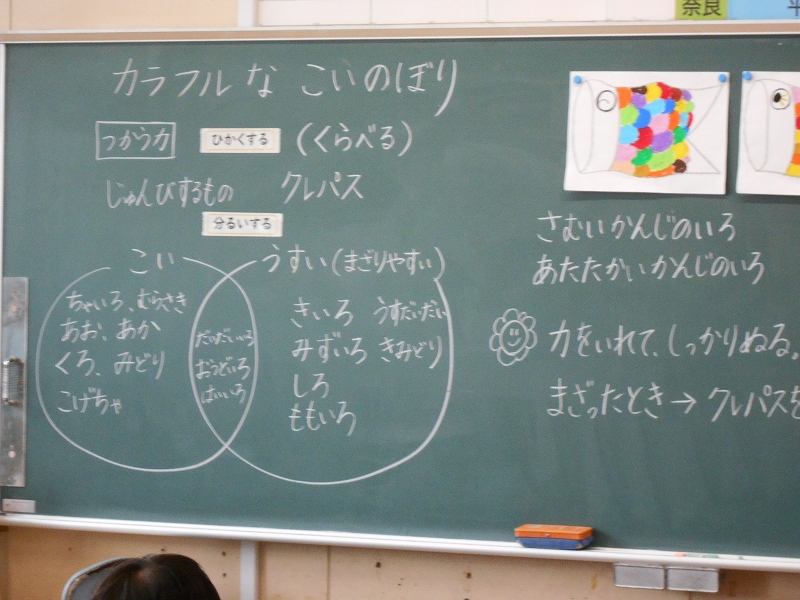 奈良
カラフルな こいのぼり
つかう力 ひかくする (くらべる)
じゅんびするもの クレパス
分るいする
こい
ちゃいろ、むらさき
あお、あか
くろ、みどり
こげちゃ
だいだいいろ
おうどいろ
はいいろ
うすい(まざりやすい)
きいろ うすだいだい
みずいろ きみどり
しろ
ももいろ
さむいかんじのいろ
あたたかいかんじのいろ
力をいれて、しっかりぬる。
まざったとき→クレパスを